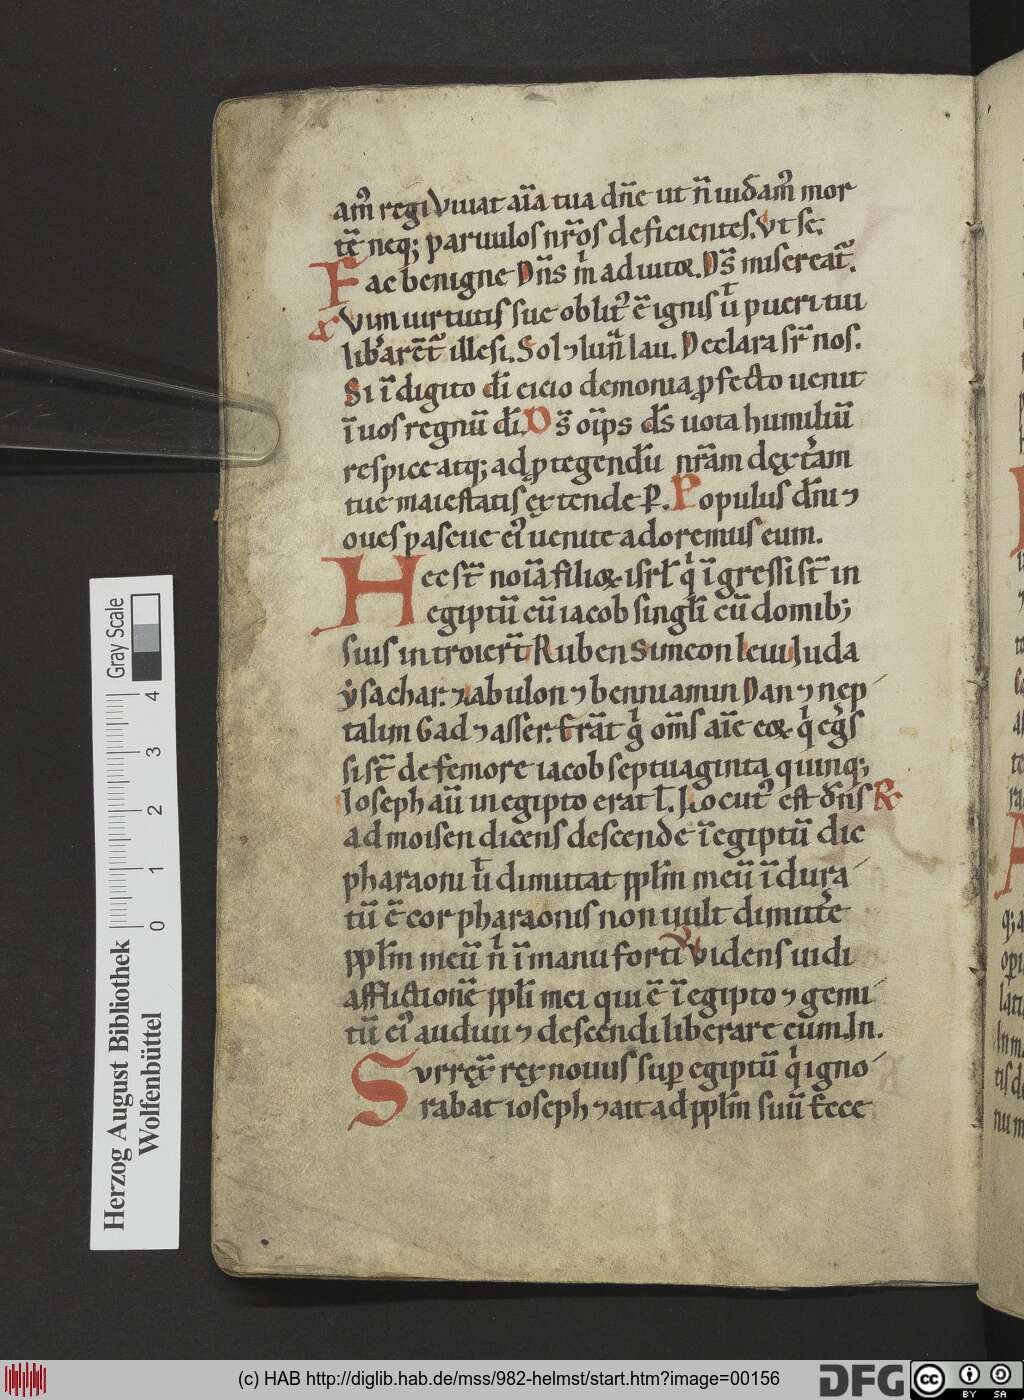 am̄ regi Viuat aīa tua dn̄e ut n̄ uidam̄ mor
tē neq; paruulos nr̄os deficientes. Vt se.
Fac benigne Dn̄s ī ad uitā. Ds̄ misereat̄.
Vim uirtutis sue oblit' ē ignis ut pueri tui
lib'arēt illesi. Sol ⁊ lun̄ lau. Declara sr̄ nos.
Si ī digito dī eicio demonia ꝓfecto uenit
ī uos regnū dī. Ds̄ oīps ds̄ uota humiliū
respice atq; ad ꝓtegendū nrām dextram
tue maiestatis extende P. Populus dn̄i ⁊
oues pascue ei' uenite adoremus eum.
Hec st̄ noīa filioꝝ isrl̄ qⁱ īgressi st̄ in
egiptū cū iacob singlī cū domib;
suis introiert̄ Ruben Simeon leui Iuda
ẏsachar. ⁊ zabulon ⁊ beniiamin Dan ⁊ nep
talim Gad ⁊ asser. Erāt g om̄s aīe eoꝝ qⁱ egs̄
si st̄ de femore iacob septuaginta quinq;
Ioseph aū in egipto erat l. Locut' est dn̄s R
ad moisen dicens descende ī egiptū dic
pharaoni ut dimittat pplm̄ meū īdura
tū ē cor pharaonis non uult dimitt'e
pplm̄ meū nⁱ ī manu forti V Videns uidi
afflictionē ppli mei qui ē ī egipto ⁊ gemi
tū ei' audiui ⁊ descendi liberare eum. In.
Surrex̄ rex nouus sup egiptū qⁱ igno
rabat ioseph ⁊ ait ad pplm̄ suū Ecce
Herzog August Bibliothek
Wolfenbüttel
Gray Scale
0 1 2 3 4
(c) HAB http://diglib.hab.de/mss/982-helmst/start.htm?image=00156
DFG
cc BY SA